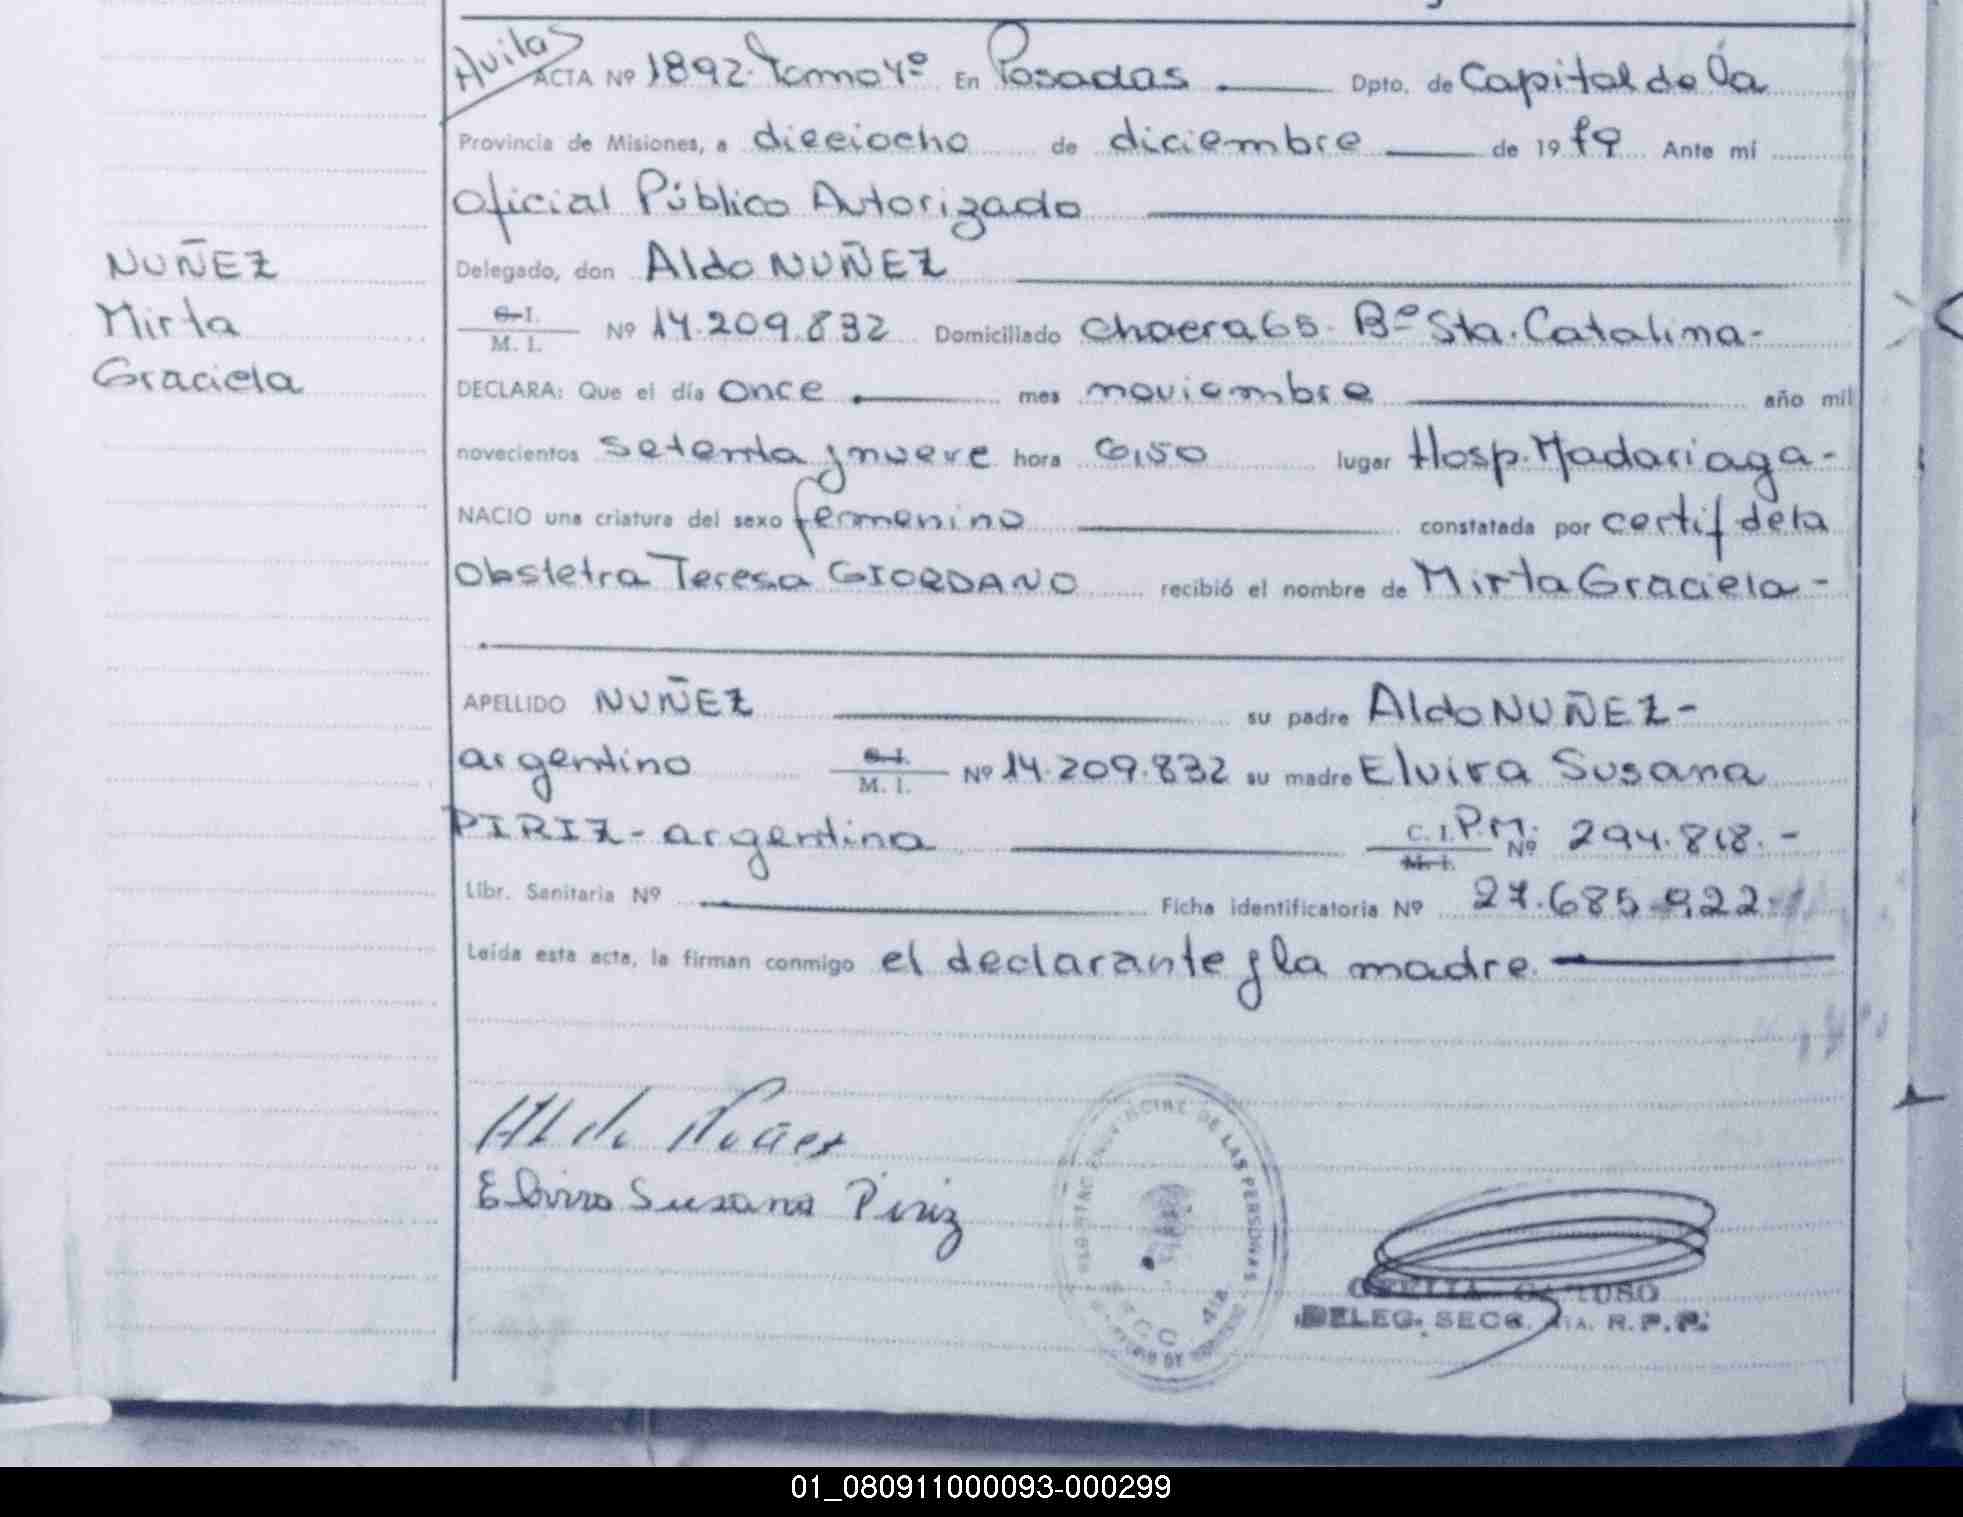 Avilas
ACTA Nº 1892. Tomo 4º En Posadas Dpto. de Capital de la
Provincia de Misiones, a dieciocho de diciembre de 1979 Ante mí
Oficial Público Autorizado
NUÑEZ
Mirta
Graciela
Delegado, don Aldo NUÑEZ
C.I.
M. I. Nº 14.209.832 Domiciliado Chacra 65. Bº Sta. Catalina-
DECLARA: Que el día once mes noviembre año mil
novecientos setenta y nueve hora 6,50 lugar Hosp. Madariaga-
NACIO una criatura del sexo femenino constatada por certif de la
Obstetra Teresa GIORDANO recibió el nombre de Mirta Graciela-
APELLIDO NUÑEZ su padre Aldo NUÑEZ-
argentino C.I.
M. I. Nº 14.209.832 su madre Elvira Susana
PIRIZ- argentina C.I. P.M.
M. I. Nº 294.818.-
Libr. Sanitaria Nº Ficha identificatoria Nº 27.685.922
Leída esta acta, la firman conmigo el declarante y la madre
Aldo Nuñez
Elvira Susana Piriz
DE LAS PERSONAS
DELEG. SECC. 4ta. R.P.P.
01_080911000093-000299